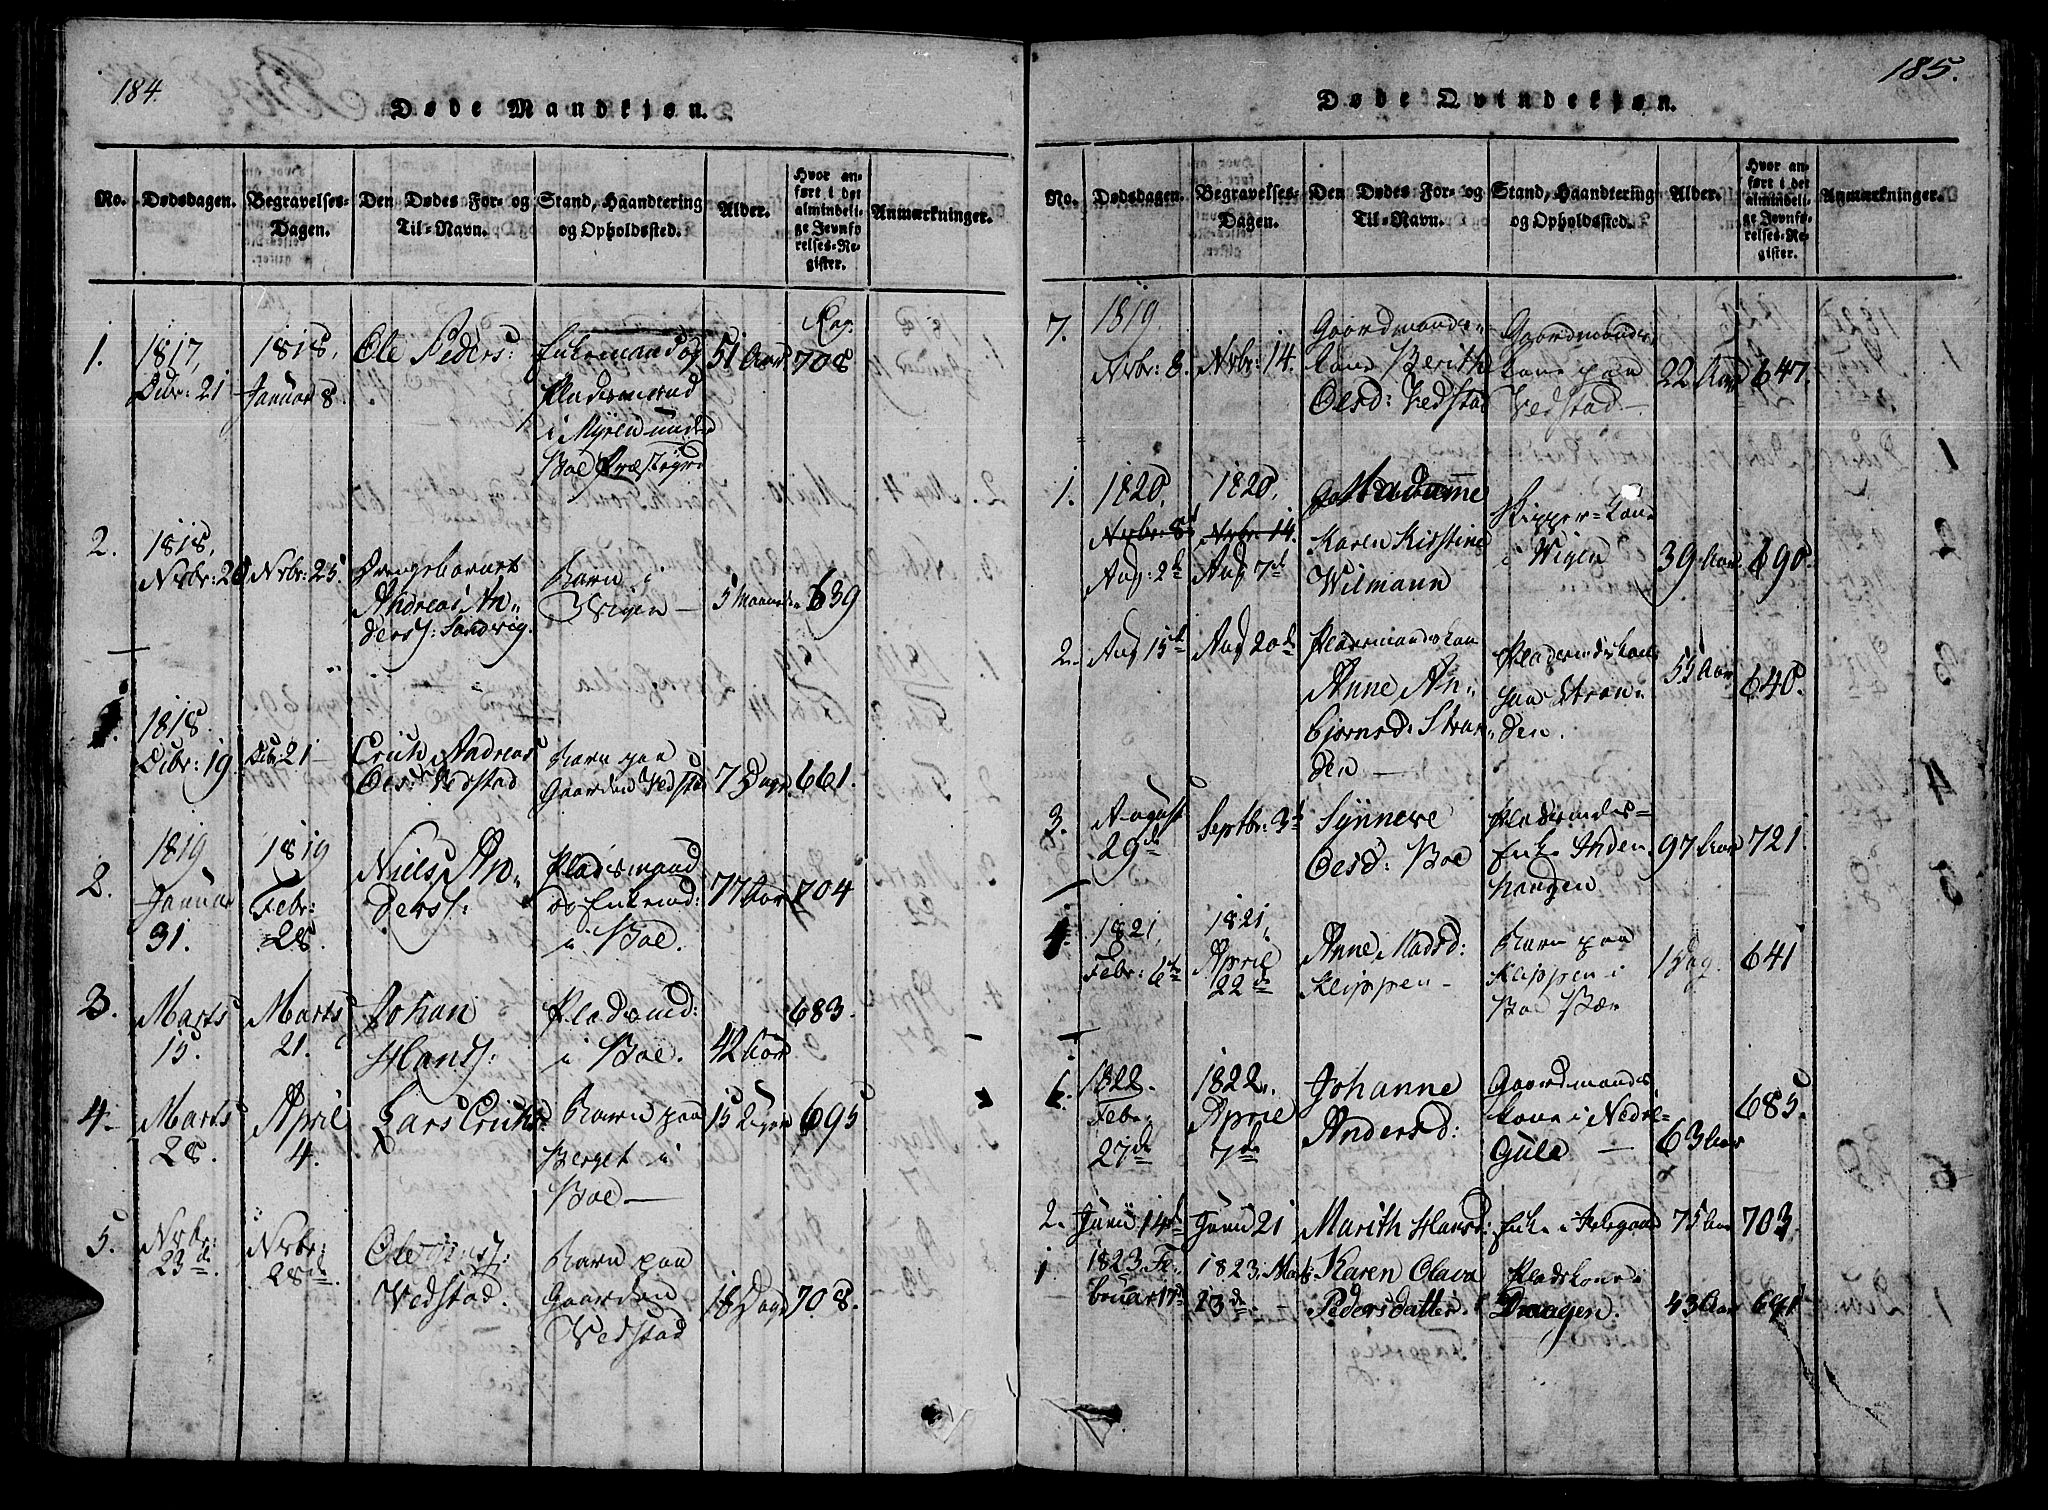 184.
Døde Mandkiøn.
No.
Dødsdagen.
Begravelses-
Dagen.
Den Dødes For- og
Til-Navn.
Stand, Haandtering
og Opholdssted.
Alder.
Hvor an-
ført i det
almindeli-
ge Jevnfø
relses-Re-
gister.
Anmærkninger.
Pag.
1.
1817,
Dcbr: 21
1818,
Januar 8
Ole Peders:
Enkemand og
Pladsmand
i Myren under
Boe Præstegrd
51 Aar
708
2.
1818,
Nvbr: 20
Nvbr: 25.
Drengebarnet
Andreas An-
ders: Sandvig.
Barn i
Wigen —
5 Maaneder
639
1818.
Dcbr: 19.
Dcbr: 21
Erich Andreas
Oes: Vedstad
Barn paa
Gaarden Vedstad
7 Dage
661.
2.
1819
Januar
31.
1819
Febr:
28.
Niels An-
ders:
Pladsmand
og Enkemd:
i Boe.
77 Aar
704
3.
Marts
15.
Marts
21.
Johan
Hans:
Pladsmd:
i Boe.
42 Aar
683.
4.
Marts
28.
April
4.
Lars Erichs:
Barn paa
Berget i
Boe —
15 Uger
695
5.
Nvbr:
23de
Nvbr:
28de
Ole
Vedstad.
Barn paa
Gaarden
Vedstad
18 Dage
708.
185.
Døde Qvindekiøn.
No.
Dødsdagen.
Begravelses-
Dagen.
Den Dødes For- og
Til-Navn.
Stand, Haandtering
og Opholdssted.
Alder.
Hvor an-
ført i det
almindeli-
ge Jevnfø-
relses-Re-
gister.
Anmærkninger.
7.
1819.
Nvbr: 8.
Nvbr: 14.
Gaardmands-
kone Berith
Oesd: Vedstad
Gaardmands
kone paa
Vedstad —
22 Aar
647.
1.
1820,
Nvbr: 8
Aug: 2de
1820,
Nvbr: 14.
Aug 7de
Madame
Karen Kisstine
Wilmann
Skipper-kone
i Wigen
39 Aar
690.
2.
Aug 15de
Aug 20de
Pladsmandskone
Anne An-
bjørnsd: Stran-
den —
Pladsmdskone
paa Stran-
den.
55 Aar
640.
3.
August
29de
Septbr: 3de
Synneve
Oesd: Boe
Pladsmands-
Enke
haugen
97 Aar
721.
1.
1821,
Febr: 6te
1821,
April
22de
Anne Madsd:
Klippen —
Barn paa
Klippen i
Boe Bær
1 Dag.
641
1.
1822.
Febr:
27de
1822.
April
7de
Johanne
Andersd:
Gaardmands
kone i Nedre-
Gule —
63 Aar
685.
2.
Junii 14de
Junii 21
Marith Hansd:
Enke i
75 Aar
703.
1
1823. Fe-
bruar 17de
1823. Marts
23de —
Karen Olava
Pedersdatter.
Pladskone i
Draagen.
43 Aar
691